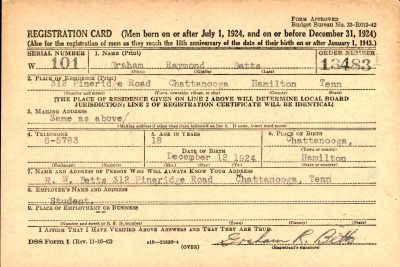 FORM APPROVED
Budget Bureau No. 33-R012-42
REGISTRATION CARD (Men born on or after July 1, 1924, and on or before December 31, 1924)
(Also for the registration of men as they reach the 18th anniversary of the date of their birth on or after January 1, 1943.)
SERIAL NUMBER 1. NAME (Print) ORDER NUMBER
W 101 Graham Raymond Batts 13483
(First) (Middle) (Last)
2. PLACE OF RESIDENCE (Print)
312 Pineridge Road Chattanooga Hamilton Tenn
(Number and street) (Town, township, village, or city) (County) (State)
[THE PLACE OF RESIDENCE GIVEN ON LINE 2 ABOVE WILL DETERMINE LOCAL BOARD
JURISDICTION; LINE 2 OF REGISTRATION CERTIFICATE WILL BE IDENTICAL]
3. MAILING ADDRESS
Same as above
[Mailing address if other than place indicated on line 2. If same, insert word same]
4. TELEPHONE 5. AGE IN YEARS 6. PLACE OF BIRTH
6-5783 18 Chattanooga,
DATE OF BIRTH (Town or county)
December 12 1924 Hamilton
(Exchange) (Number) (Mo.) (Day) (Yr.) (State or country)
7. NAME AND ADDRESS OF PERSON WHO WILL ALWAYS KNOW YOUR ADDRESS
R. W. Batts 312 Pineridge Road Chattanooga, Tenn
8. EMPLOYER'S NAME AND ADDRESS
Student.
9. PLACE OF EMPLOYMENT OR BUSINESS
(Number and street or R. F. D. number) (Town) (County) (State)
I AFFIRM THAT I HAVE VERIFIED ABOVE ANSWERS AND THAT THEY ARE TRUE.
DSS Form 1 (Rev. 11-16-42) (OVER) Graham R. Batts
(Registrant's signature)